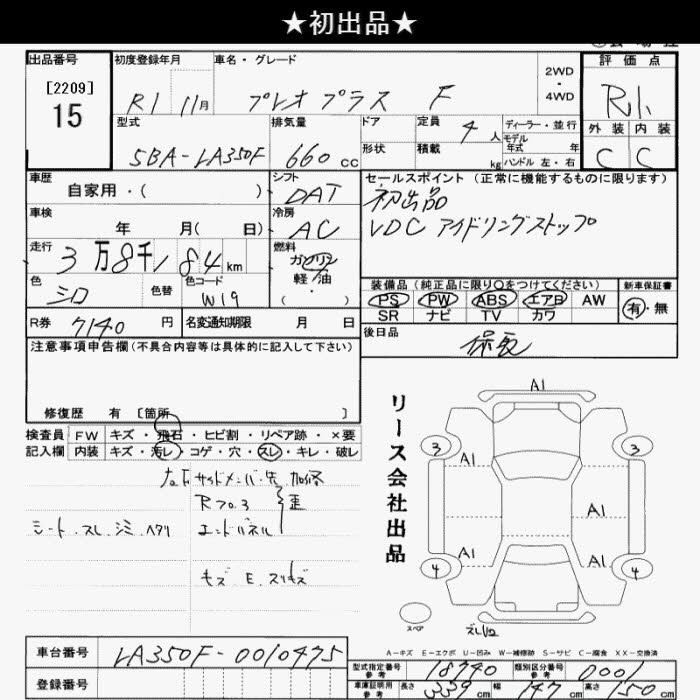 ★初出品★
出品番号 初度登録年月 車名・グレード 評価点
[2209]
15
R1 11月 プレオ プラス F
2WD
・
4WD
R1
型式 排気量 ドア 定員 4 人 ディーラー・並行 外装 内装
モデル
年式 年
5BA-LA350F 660 cc 形状 積載 kg ハンドル 左・右 C C
車歴 シフト セールスポイント (正常に機能するものに限ります)
自家用・( ) DAT 初出品
車検 冷房 VDC アイドリングストップ
年 月( 日) AC
走行 燃料
3万8千184 km ガソリン
軽・油
・
( )
色 色替 色コード
シロ W19
装備品 (純正品に限り○をつけてください) 新車保証書
PS PW ABS エアB AW 有・無
SR ナビ TV カワ
R券 7140 円 名変通知期限 月 日
後日品 保取
注意事項申告欄 (不具合内容等は具体的に記入して下さい)
修復歴 有 [箇所 ]
検査員 FW キズ・飛石・ヒビ割・リペア跡・×要
記入欄 内装 キズ・汚レ・コゲ・穴・スレ・キレ・破レ
シート・スレ・シミ・ヘタリ
エンドパネル
リース会社出品
A1
3 3
A1
A1
A1 A1
4 4
スペア
A－キズ E－エクボ U－凹み W－補修跡 S－サビ C－腐食 XX－交換済
車台番号 LA350F-0010475
登録番号
型式指定番号 参考 18740 類別区分番号 参考 0001
車庫証明用 参考 長さ 339 cm 幅 147 cm 高さ 150 cm